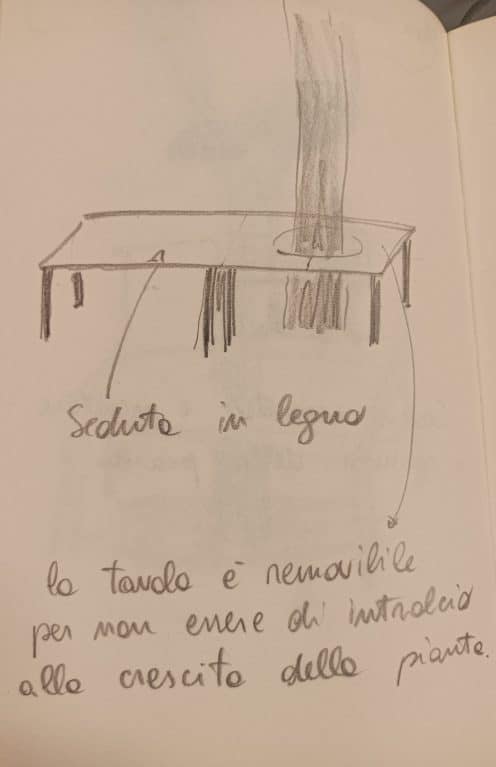 Seduta in legno
la tavola è removibile
per non essere di intralcio
alla crescita della pianta.